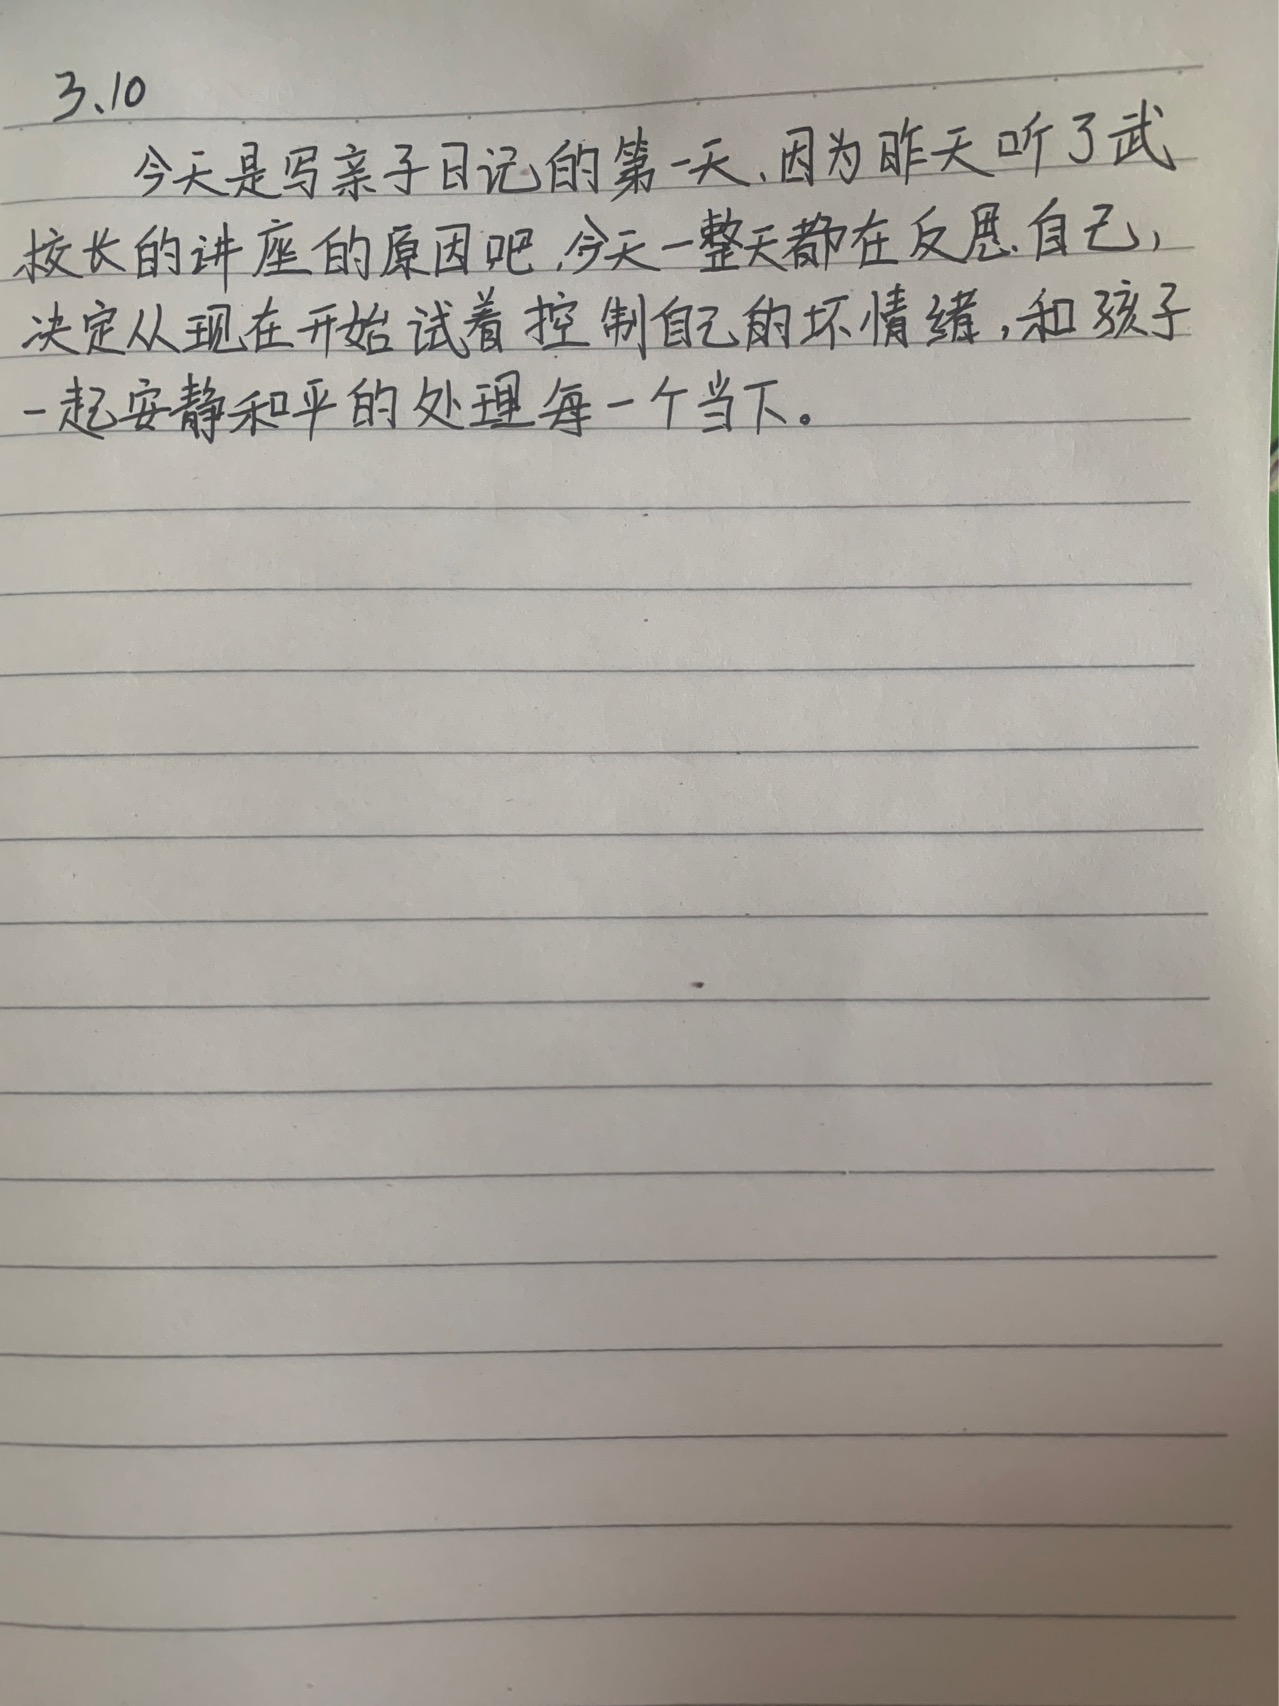 3.10
今天是写亲子日记的第一天、因为昨天听了武
校长的讲座的原因吧、今天一整天都在反思自己，
决定从现在开始试着控制自己的坏情绪，和孩子
一起安静和平的处理每一个当下。